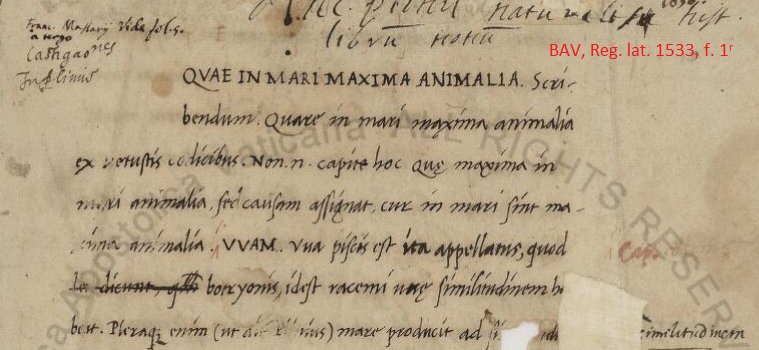 Franc. Massarij Vide fol. 5.
a tergo
Castigaões
In Plinius
C. Plinii naturalis hist.
librũ nonũ
BAV, Reg. lat. 1533, f. 1r
QVAE IN MARI MAXIMA ANIMALIA. Scri-
bendum. Quare in mari maxima animalia
ex vetustis codicibus. Non.n. capite hoc quę maxima in
mari animalia, sed causam assignat, cur in mari sint ma-
xima animalia. VVAM. Vua piscis est ita appellatus, quod
dicunt, botryonis, idest racemi uuę similitudinem
beat. Pleraq; enim (ut mare producit ad similitudinem
Vaticana ALL RIGHTS RESERV